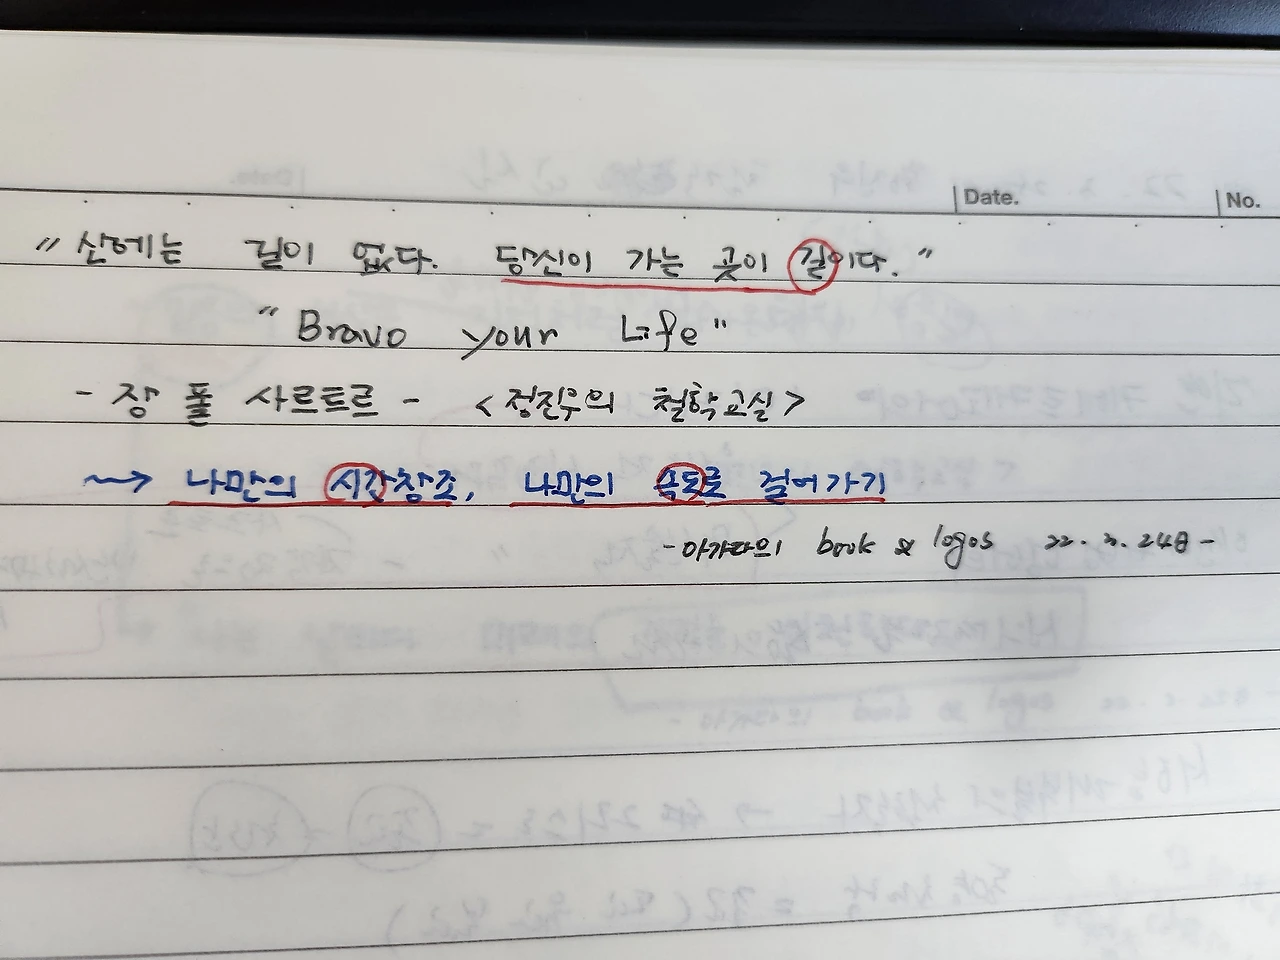 Date.
No.
"산에는 길이 없다. 당신이 가는 곳이 길이다."
"Bravo your Life"
- 장 폴 사르트르 - <정진우의 철학교실>
~> 나만의 시간창조, 나만의 속도로 걸어가기
-아가다의 book & logos 22. 3. 24日-